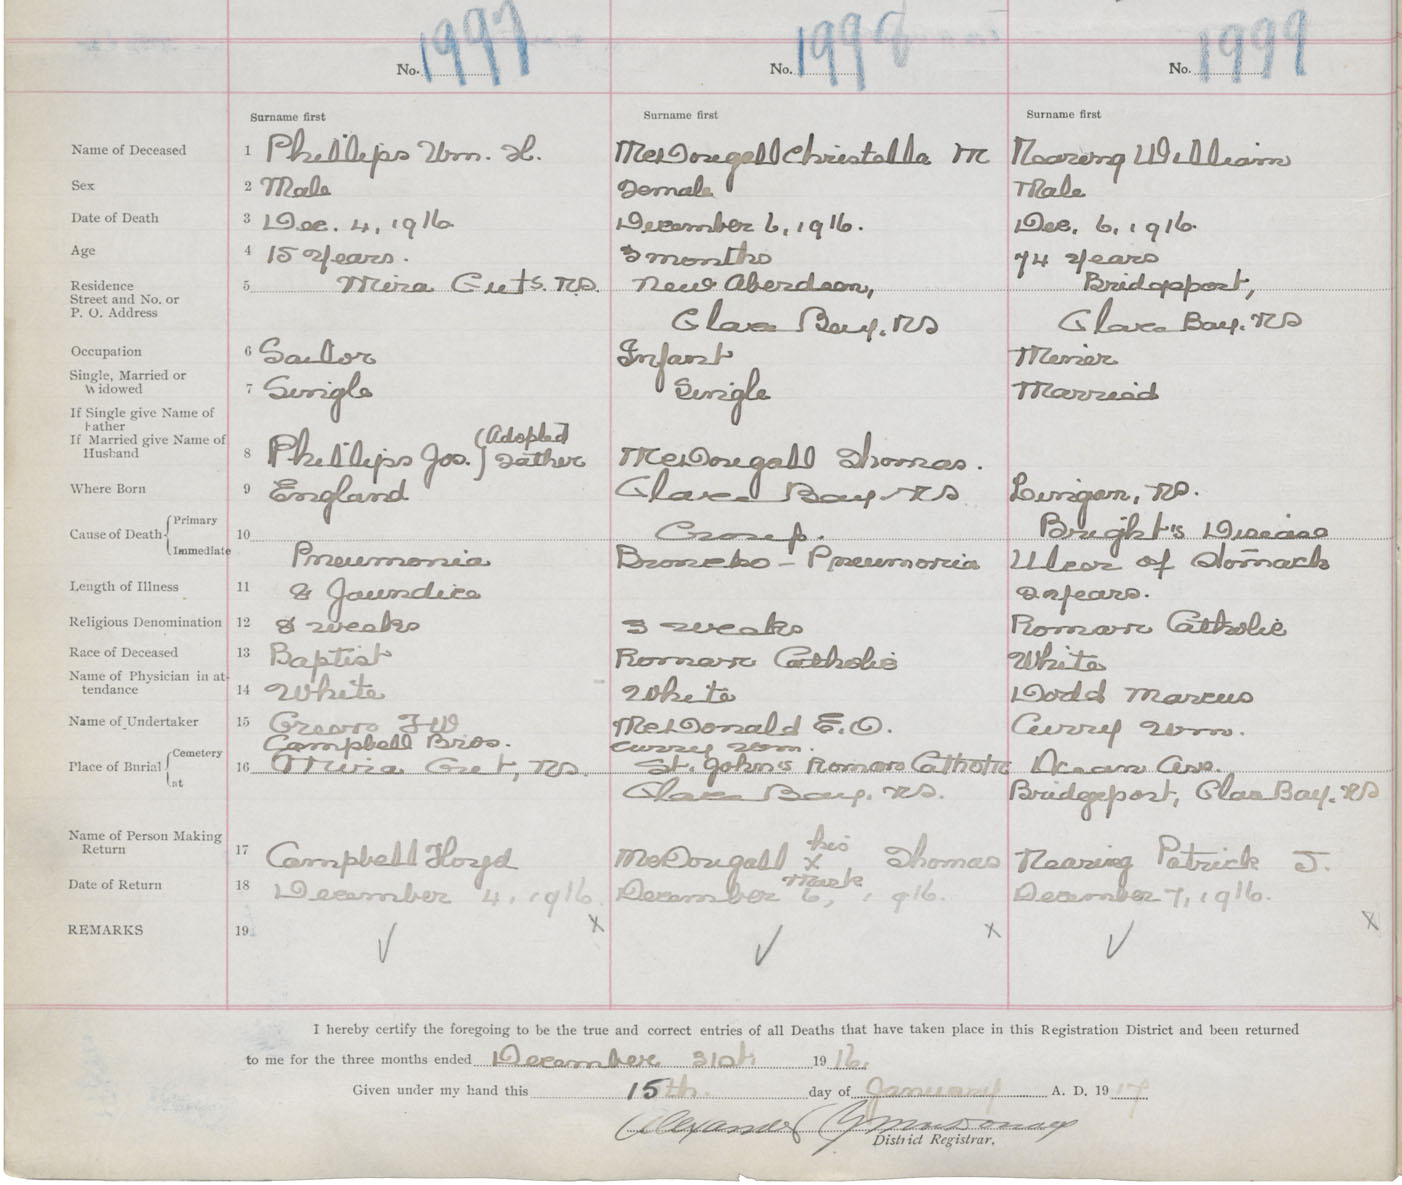 No. 1997 No. 1998 No. 1999
Surname first Surname first Surname first
Name of Deceased 1 Phillips Wm. H. McDougall Christella M Nearing William
Sex 2 Male Female Male
Date of Death 3 Dec. 4, 1916. December 6, 1916. Dec. 6, 1916.
Age 4 15 years. 3 months 74 years
Residence 5 Mira Gut, N.S. New Aberdeen, Bridgeport,
Street and No. or
P. O. Address Glace Bay, NS Glace Bay, NS
Occupation 6 Sailor Infant Miner
Single, Married or
Widowed 7 Single Single Married
If Single give Name of
Father
If Married give Name of (Adopted
Husband 8 Phillips Jos. Father McDougall Thomas.
Where Born 9 England Glace Bay NS Lingan, NS.
Cause of Death Primary 10 Croup. Bright's Disease
Immediate Pneumonia Broncho-Pneumonia Ulcer of Stomach
Length of Illness 11 & Jaundice 2 years.
Religious Denomination 12 8 weeks 3 weeks Roman Catholic
Race of Deceased 13 Baptist Roman Catholic White
Name of Physician in at-
tendance 14 White White Dodd Marcus
Name of Undertaker 15 McDonald E.O. Curry Wm.
Campbell Bros. Curry Wm.
Place of Burial Cemetery 16 Mira Gut, NS. St. John's Roman Catholic Ocean Ave.
at Glace Bay, NS. Bridgeport, Glace Bay, NS
Name of Person Making his
Return 17 Campbell Floyd McDougall x Thomas Nearing Patrick J.
mark
Date of Return 18 December 4, 1916. December 6, 1916. December 7, 1916.
REMARKS 19 ✓ x ✓ x ✓ x
I hereby certify the foregoing to be the true and correct entries of all Deaths that have taken place in this Registration District and been returned
to me for the three months ended December 31st 1916.
Given under my hand this 15th. day of January A. D. 1917
Alexander
District Registrar.